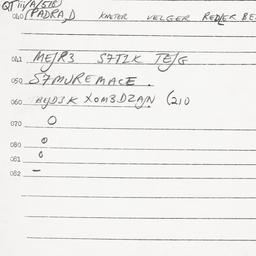 040 (PADRA,D KMETER VELGER REDLER BE
041 MEJR3 S7TZK TEJG
050 S7MUREMACE .
060 HYDJK XOM3DZAJN (210
070 O
080 O
081 O
082 –